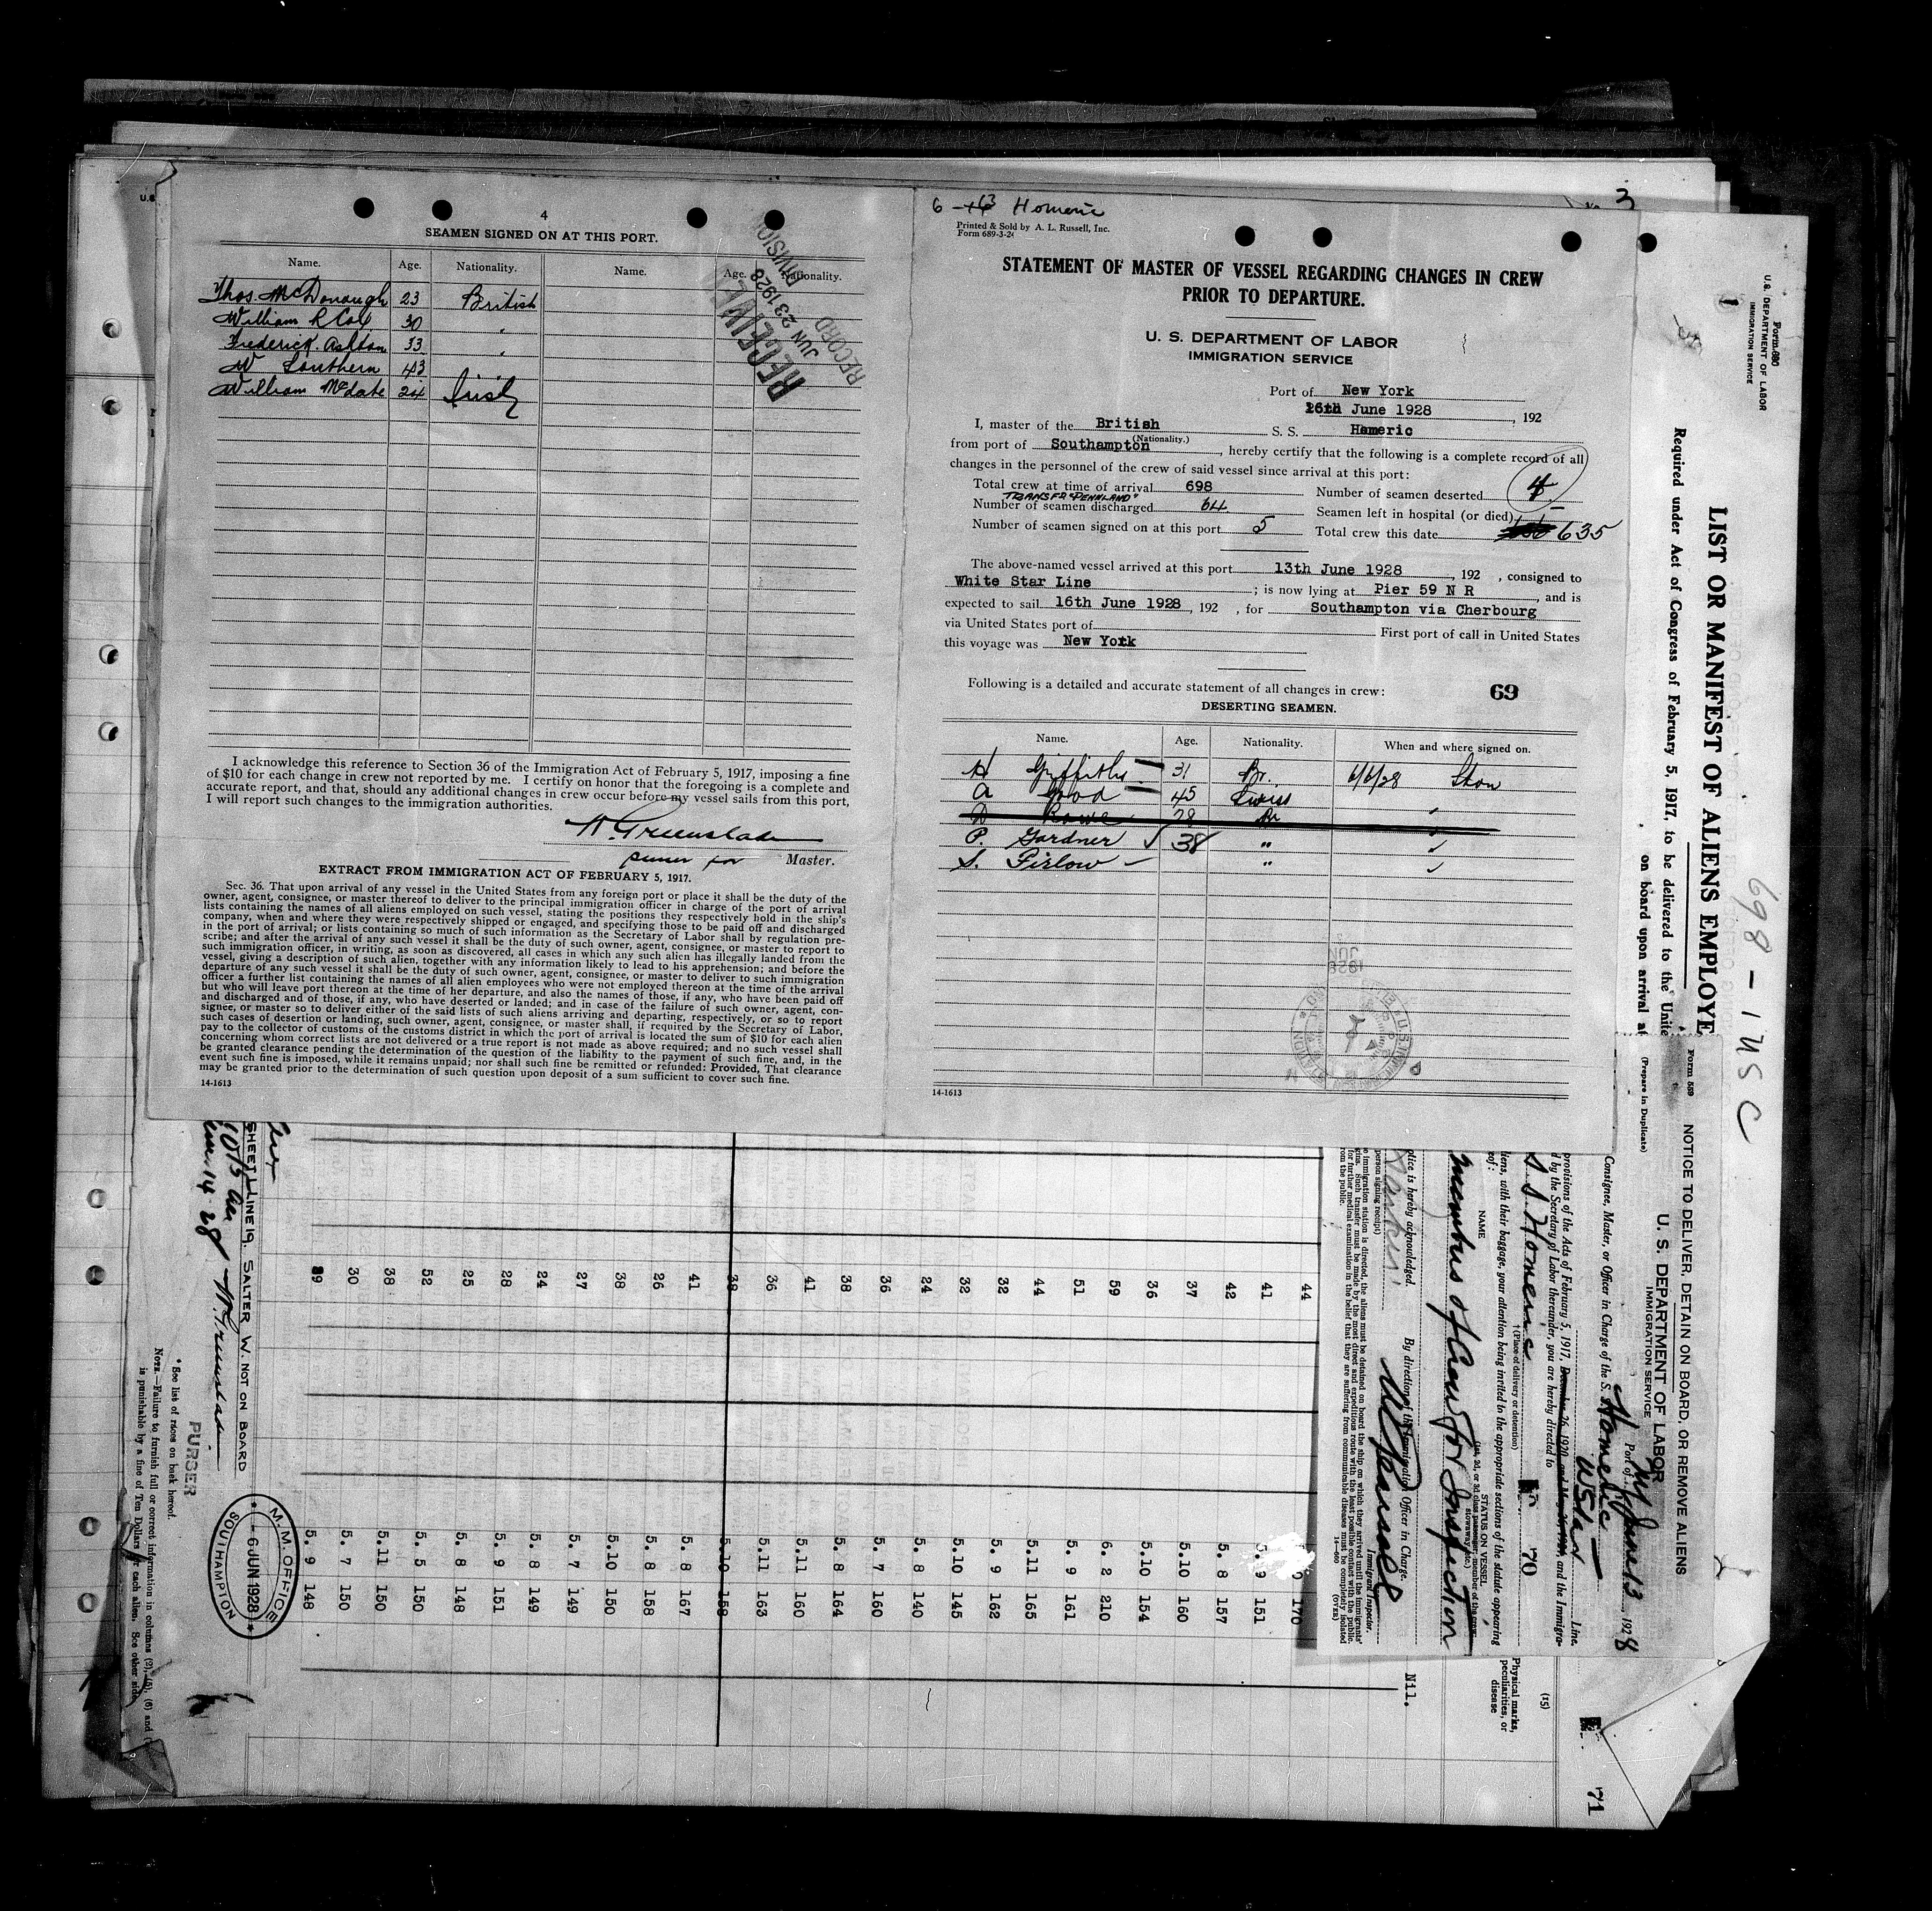 4
SEAMEN SIGNED ON AT THIS PORT.
Name. Age. Nationality. Name. Age. Nationality.
Thos. McDonough 23 British
William R Cox 30 "
Frederick Ashton 33 "
W Southern 43
William McDade 24 Irish
RECEIVED
JUN 23 1928
RECORD DIVISION
I acknowledge this reference to Section 36 of the Immigration Act of February 5, 1917, imposing a fine
of $10 for each change in crew not reported by me. I certify on honor that the foregoing is a complete and
accurate report, and that, should any additional changes in crew occur before my vessel sails from this port,
I will report such changes to the immigration authorities.
W. Greenslade
purser for Master.
EXTRACT FROM IMMIGRATION ACT OF FEBRUARY 5, 1917.
Sec. 36. That upon arrival of any vessel in the United States from any foreign port or place it shall be the duty of the
owner, agent, consignee, or master thereof to deliver to the principal immigration officer in charge of the port of arrival
lists containing the names of all aliens employed on such vessel, stating the positions they respectively hold in the ship's
company, when and where they were respectively shipped or engaged, and specifying those to be paid off and discharged
in the port of arrival; or lists containing so much of such information as the Secretary of Labor shall by regulation pre-
scribe; and after the arrival of any such vessel it shall be the duty of such owner, agent, consignee, or master to report to
such immigration officer, in writing, as soon as discovered, all cases in which any such alien has illegally landed from the
vessel, giving a description of such alien, together with any information likely to lead to his apprehension; and before the
departure of any such vessel it shall be the duty of such owner, agent, consignee, or master to deliver to such immigration
officer a further list containing the names of all alien employees who were not employed thereon at the time of the arrival
but who will leave port thereon at the time of her departure, and also the names of those, if any, who have been paid off
and discharged and of those, if any, who have deserted or landed; and in case of the failure of such owner, agent, con-
signee, or master so to deliver either of the said lists of such aliens arriving and departing, respectively, or so to report
such cases of desertion or landing, such owner, agent, consignee, or master shall, if required by the Secretary of Labor,
pay to the collector of customs of the customs district in which the port of arrival is located the sum of $10 for each alien
concerning whom correct lists are not delivered or a true report is not made as above required; and no such vessel shall
be granted clearance pending the determination of the question of the liability to the payment of such fine, and, in the
event such fine is imposed, while it remains unpaid; nor shall such fine be remitted or refunded: Provided, That clearance
may be granted prior to the determination of such question upon deposit of a sum sufficient to cover such fine.
14-1613
6 - 13 Homeric
Printed & Sold by A. L. Russell, Inc.
Form 689-3-24
STATEMENT OF MASTER OF VESSEL REGARDING CHANGES IN CREW
PRIOR TO DEPARTURE.
U. S. DEPARTMENT OF LABOR
IMMIGRATION SERVICE
Port of New York
16th June 1928, 192
I, master of the British S. S. Homeric
(Nationality.)
from port of Southampton, hereby certify that the following is a complete record of all
changes in the personnel of the crew of said vessel since arrival at this port:
Total crew at time of arrival 698 Number of seamen deserted 4
TRANSFD "PENNLAND"
Number of seamen discharged 64 Seamen left in hospital (or died) -
Number of seamen signed on at this port 5 Total crew this date 635
The above-named vessel arrived at this port 13th June 1928, 192 , consigned to
White Star Line ; is now lying at Pier 59 N R, and is
expected to sail 16th June 1928, 192 , for Southampton via Cherbourg
via United States port of First port of call in United States
this voyage was New York
Following is a detailed and accurate statement of all changes in crew: 69
DESERTING SEAMEN.
Name. Age. Nationality. When and where signed on.
H Griffiths 31 Br. 6/6/28 Ston
A Good 45 Swiss "
D Rowe 28 Br "
P. Gardner ✓ 38 " "
S. Firlow - " "
1928
JUN
14-1613
3
Form 680
U. S. DEPARTMENT OF LABOR
IMMIGRATION SERVICE
LIST OR MANIFEST OF ALIENS EMPLOYE
Required under Act of Congress of February 5, 1917, to be delivered to the Unite
on board upon arrival at
698 - 1 USC
Form 559
(Prepare in Duplicate)
NOTICE TO DELIVER, DETAIN ON BOARD, OR REMOVE ALIENS
U. S. DEPARTMENT OF LABOR
IMMIGRATION SERVICE
Port of NY June 13, 1928
Consignee, Master, or Officer in Charge of the S. Homeric
Line.
provisions of the Acts of February 5, 1917, December 26, 1920, and May 26, 1924, and the Immigra-
d by the Secretary of Labor thereunder, you are hereby directed to
S. S. Homeric 70
† (Place of delivery or detention)
liens, with their baggage, your attention being invited to the appropriate sections of the statute appearing
eof:
NAME
STATUS ON VESSEL
(1st, 2d, or 3d class passenger, member of the crew, stowaway, etc.)
members of Crew for Inspection
otice is hereby acknowledged.
By direction of the Immigration Officer in Charge.
person signing receipt)
Immigrant Inspector.
e immigration station is directed, the aliens must be detained on board the ship on which they arrived until the immigrants'
gins. Such transfer must be made by the most direct and expeditious route with the least possible contact with the public.
for further medical examination in the belief that they are suffering from communicable diseases must be completely isolated
rom the public.
14-560 (OVER)
(15)
Physical marks, peculiarities, or disease
Nil.
71
44 170
41 5. 9 151
42 5. 8 157
37 5.10 160
36 5.10 154
59 6. 2 210
51 5. 9 161
44 5.11 165
32 5. 9 162
32 5.10 145
24 5. 8 140
36 5. 7 160
38 5. 8 164
41 5.11 160
36 5.11 163
38 5.10 158
41 5. 8 167
26 5. 8 158
38 5.10 150
27 5. 7 149
24 5. 8 149
28 5. 9 151
25 5. 8 148
52 5. 5 150
38 5.11 150
30 5. 7 150
39 5. 9 148
SHEET 1 LINE 19. SALTER W. NOT ON BOARD
W. Greenslade
PURSER
M. M. OFFICE
- 6 JUN 1928
SOUTHAMPTON
* See list of races on back hereof.
NOTE.—Failure to furnish full or correct information in columns (2), (5), (6) and (
is punishable by a fine of Ten Dollars for each alien. See other side.